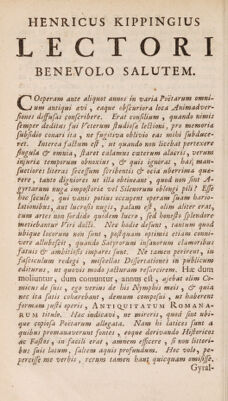 HENRICUS KIPPINGIUS
LECTORI
BENEVOLO SALUTEM.
COEperam ante aliquot annos in varia Poëtarum omni-
um antiqui avi, eaque obscuriora loca Animadver-
siones diffusas conscribere. Erat consilium, quando nimis
semper deditus fui Veterum studiosa lectioni, pro memoria
subsidio conari ita, ne fugitiva oblivio ea mihi subduce-
ret. Interea factum est, ut quando non licebat pertexere
singula & omnia, staret calamus caterum alacris, verum
injuria temporum obnoxius, & quis ignorat, has, man-
suetiores literas secessum scribentis & ocia ubertima qua-
rere, tanto digniores ut illa obtineant, quod non sint A-
gyrtarum nuga impostoria vel Silenorum oblongi pili? Esse
hoc seculo, qui vanis potius occupent operam suam hario-
lationibus, aut lucrosis nugis, palam est, alim aliter erat,
cum artes non sordido quidem lucro, sed honesto splendore
metiebantur Viri docti. Nec hodie desunt, tantum quod
ubique locorum non sunt, postquam optimi etiam conni-
vere allubescit, quando Satyrorum insanorum clamoribus
fatuis & ambitiosis impares sunt. Ne tamen perirent, in
fasciculum redegi, miscellas Dissertationes in publicum
editurus, ut quovis modo jacturam resarcirem. Hæc dum
moliuntur, dum comuntur, annus est, ajebat olim Co-
micus de suis, ego verius de his Nymphis meis, & quia
nec ita satis cohærebant, demum composui, ut haberent
formam justi operis, ANTIQUITATUM ROMANA-
RUM titulo. Hæc indicavi, ne mireris, quod sint ubi-
que copiosa Poëtarum allegata. Nam hi latices sunt a
quibus promanaverunt fontes, eoque derivando Historicos
ac Fastos, in facili erat, amnem efficere, si non littori-
bus suis latum, saltem aquis profundum. Hæc volo, per-
percisse me verbis, rerum tamen haut quicquam omisisse,
Gyral-